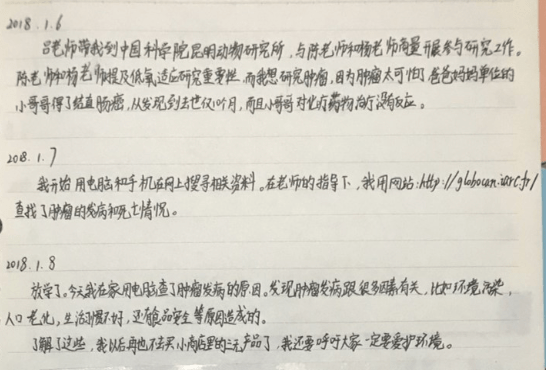 2018.1.6
吕老师带我到中国科学院昆明动物研究所,与陈老师和杨老师商量开展参与研究工作。
陈老师和杨老师提及低氧适应研究重要性,而我想研究肿瘤,因为肿瘤太可怕了,爸爸妈妈单位的
小哥哥得了结直肠癌,从发现到去世仅10个月,而且小哥哥对化疗药物治疗没有反应。
2018.1.7
我开始用电脑和手机在网上搜寻相关资料。在老师的指导下,我用网站:http://globocan.iarc.fr/
查找了肿瘤的发病和死亡情况。
2018.1.8
放学了。今天我在家用电脑查了肿瘤发病的原因。发现肿瘤发病跟很多因素有关,比如环境污染,
人口老化,生活习惯不好,还有食品安全等原因造成的。
了解了这些,我以后再也不去买小商店里的三无产品了,我还要呼吁大家一定要爱护环境。